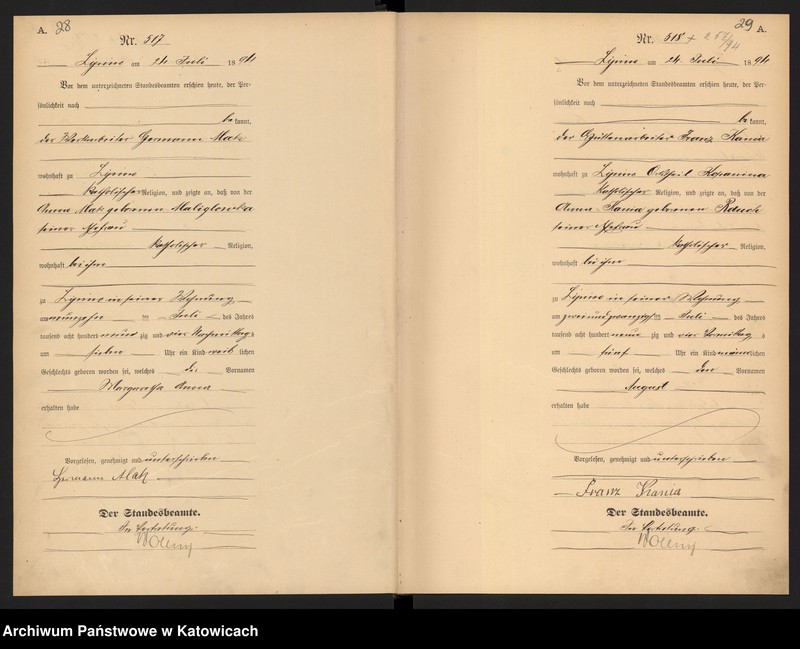 A. 28
Nr. 517
Lipine am 24 Juli 1894
Vor dem unterzeichneten Standesbeamten erschien heute, der Per-
sönlichkeit nach
be kannt,
der Hermann Matz
wohnhaft zu Lipine
katholischer Religion, und zeigte an, daß von der
Anna Matz geborenen
seiner Ehefrau
katholischer Religion,
wohnhaft bei ihm
zu Lipine in seiner Wohnung
am neunzehn ten Juli des Jahres
tausend acht hundert neun zig und vier Nachmittags
um sieben Uhr ein Kind weib lichen
Geschlechts geboren worden sei, welches die Vornamen
Margaretha Anna
erhalten habe
Vorgelesen, genehmigt und unterschrieben
Hermann Matz
Der Standesbeamte.
In Vertretung.
29 A.
Nr. 518 +
Lipine am 24. Juli 1894
Vor dem unterzeichneten Standesbeamten erschien heute, der Per-
sönlichkeit nach
be kannt,
der Hüttenarbeiter Franz Kania
wohnhaft zu Lipine Ortstheil Kopanina
katholischer Religion, und zeigte an, daß von der
Anna Kania geborenen Rauch
seiner Ehefrau
katholischer Religion,
wohnhaft bei ihm
zu Lipine in seiner Wohnung
am zweiundzwanzigsten Juli des Jahres
tausend acht hundert neun zig und vier Vormittag s
um fünf Uhr ein Kind männlichen
Geschlechts geboren worden sei, welches den Vornamen
August
erhalten habe
Vorgelesen, genehmigt und unterschrieben
Franz Kania
Der Standesbeamte.
In Vertretung.
Archiwum Państwowe w Katowicach